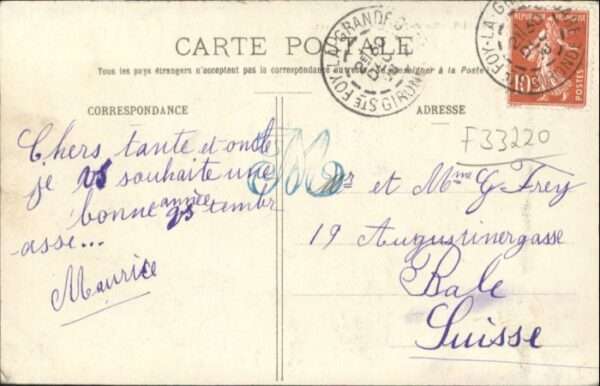 CARTE POSTALE
Tous les pays étrangers n'acceptent pas la correspondance au à la Poste
CORRESPONDANCE
ADRESSE
F33220
Chers tante et oncle
je vs souhaite une
bonne année vs embr
asse...
Maurice
Mr et Mme G. Frey
19 Augustinergasse
Bale
Suisse
STE FOY-LA-GRANDE
GIRONDE
STE FOY-LA-GRANDE
GIRONDE
10
POSTES
M